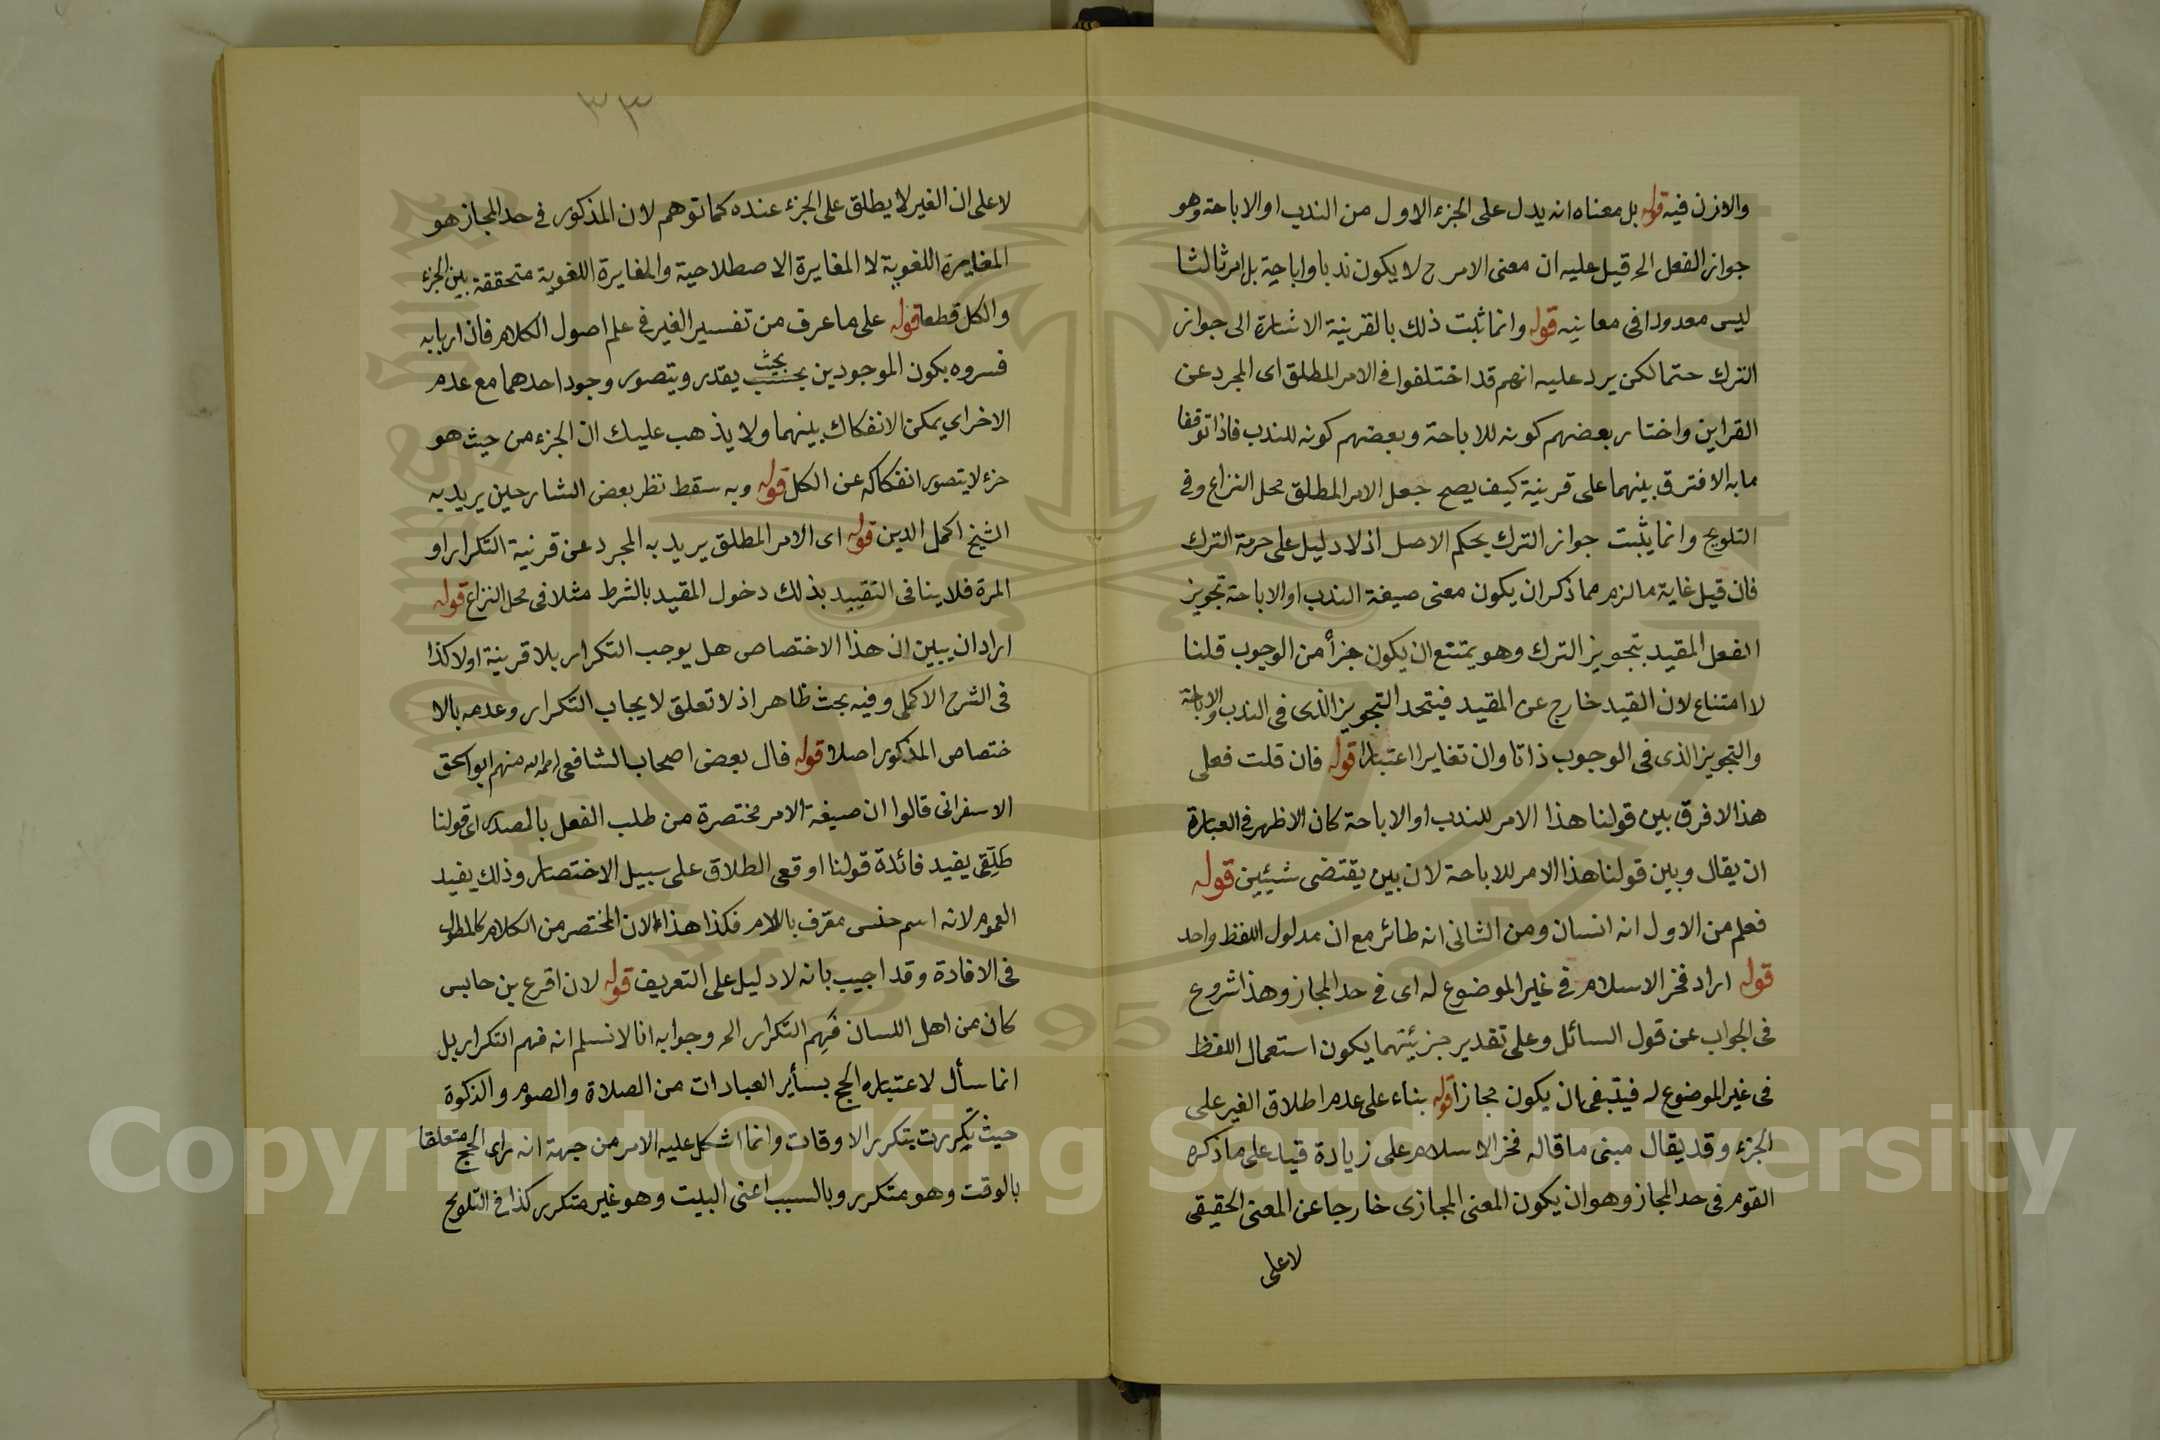 والاذن فيه قوله بل معناه انه يدل على الجزء الاول من الندب او الاباحة وهو
جواز الفعل الخ قيل عليه ان معنى الامر ح لا يكون ندبا واباحة بل امرثالثا
ليس معدودا فى معانيه قوله وانما ثبت ذلك بالقرينة الاشارة الى جواز
الترك حتما لكن يرد عليه انهم قد اختلفوا فى الامر المطلق اى المجرد عن
القراين واختار بعضهم كونه للاباحة وبعضهم كونه للندب فاذا توقفا
ما به الافترق بينهما على قرينة كيف يصح جعل الامر المطلق محل النزاع وفى
التلويح وانما يثبت جواز الترك بحكم الاصل اذ لا دليل على حرمة الترك
فان قيل غاية ما لزم مما ذكر ان يكون معنى صيغة الندب او الاباحة تجويز
الفعل المقيد بتجويز الترك وهو يمتنع ان يكون جزأ من الوجوب قلنا
لا امتناع لان القيد خارج عن المقيد فيتحد التجويز الذى فى الندب والاباحة
والتجويز الذى فى الوجوب ذاتا وان تغايرا اعتبارا قوله فان قلت فعلى
هذا لا فرق بين قولنا هذا الامر للندب او الاباحة كان الاظهر فى العبارة
ان يقال وبين قولنا هذا الامر للاباحة لان بين يقتضى شيئين قوله
فعلم من الاول انه انسان ومن الثانى انه طائر مع ان مدلول اللفظ واحد
قوله اراد فخر الاسلام فى غير الموضوع له اى فى حد المجاز وهذا شروع
فى الجواب عن قول السائل وعلى تقدير جزئيتهما يكون استعمال اللفظ
فى غير الموضوع له فينبغى ان يكون مجازا قوله بناء على عدم اطلاق الغير على
الجزء وقد يقال مبنى ما قاله فخر الاسلام على زيادة قيد على ما ذكره
القوم فى حد المجاز وهو ان يكون المعنى المجازى خارجا عن المعنى الحقيقى
لا على
٣٣
لا على ان الغير لا يطلق على الجزء عنده كما توهم لان المذكور فى حد المجاز هو
المغايرة اللغوية لا المغايرة الاصطلاحية والمغايرة اللغوية متحققة بين الجزء
والكل قطعا قوله على ما عرف من تفسير الغير فى علم اصول الكلام فان اربابه
فسروه بكون الموجودين بحسب بحيث يقدر ويتصور وجود احدهما مع عدم
الاخر اى يمكن الانفكاك بينهما ولا يذهب عليك ان الجزء من حيث هو
جزء لا يتصور انفكاكه عن الكل قوله وبه سقط نظر بعض الشارحين يريد به
الشيخ اكمل الدين قوله اى الامر المطلق يريد به المجرد عن قرينة التكرار او
المرة فلا ينافى التقييد بذلك دخول المقيد بالشرط مثلا فى محل النزاع قوله
اراد ان يبين ان هذا الاختصاص هل يوجب التكرار بلا قرينة اولا كذا
فى الشرح الاكملى وفيه بحث ظاهر اذ لا تعلق لايجاب التكرار وعدمه بالا
ختصاص المذكور اصلا قوله قال بعض اصحاب الشافعى منهم ابو اسحق
الاسفرانى قالوا ان صيغة الامر مختصرة من طلب الفعل بالمصدر اى قولنا
طَلِّقى يفيد فائدة قولنا اوقعى الطلاق على سبيل الاختصار وذلك يفيد
العموم لانه اسم جنس معرف باللام فكذا هذا لان المختصر من الكلام كالمطول
فى الافادة وقد اجيب بانه لا دليل على التعريف قوله لان اقرع بن حابس
كان من اهل اللسان فَهِم التكرار الخ وجوابه انا لا نسلم انه فهم التكرار بل
انما سأل لاعتباره الحج بسأير العبادات من الصلاة والصوم والزكوة
حيث تكررت بتكرر الاوقات وانما اشكل عليه الامر من جهة انه راى الحج متعلقا
بالوقت وهو متكرر وبالسبب اعنى البيت وهو غير متكرر كذا فى التلويح
Copyright © King Saud University
1957